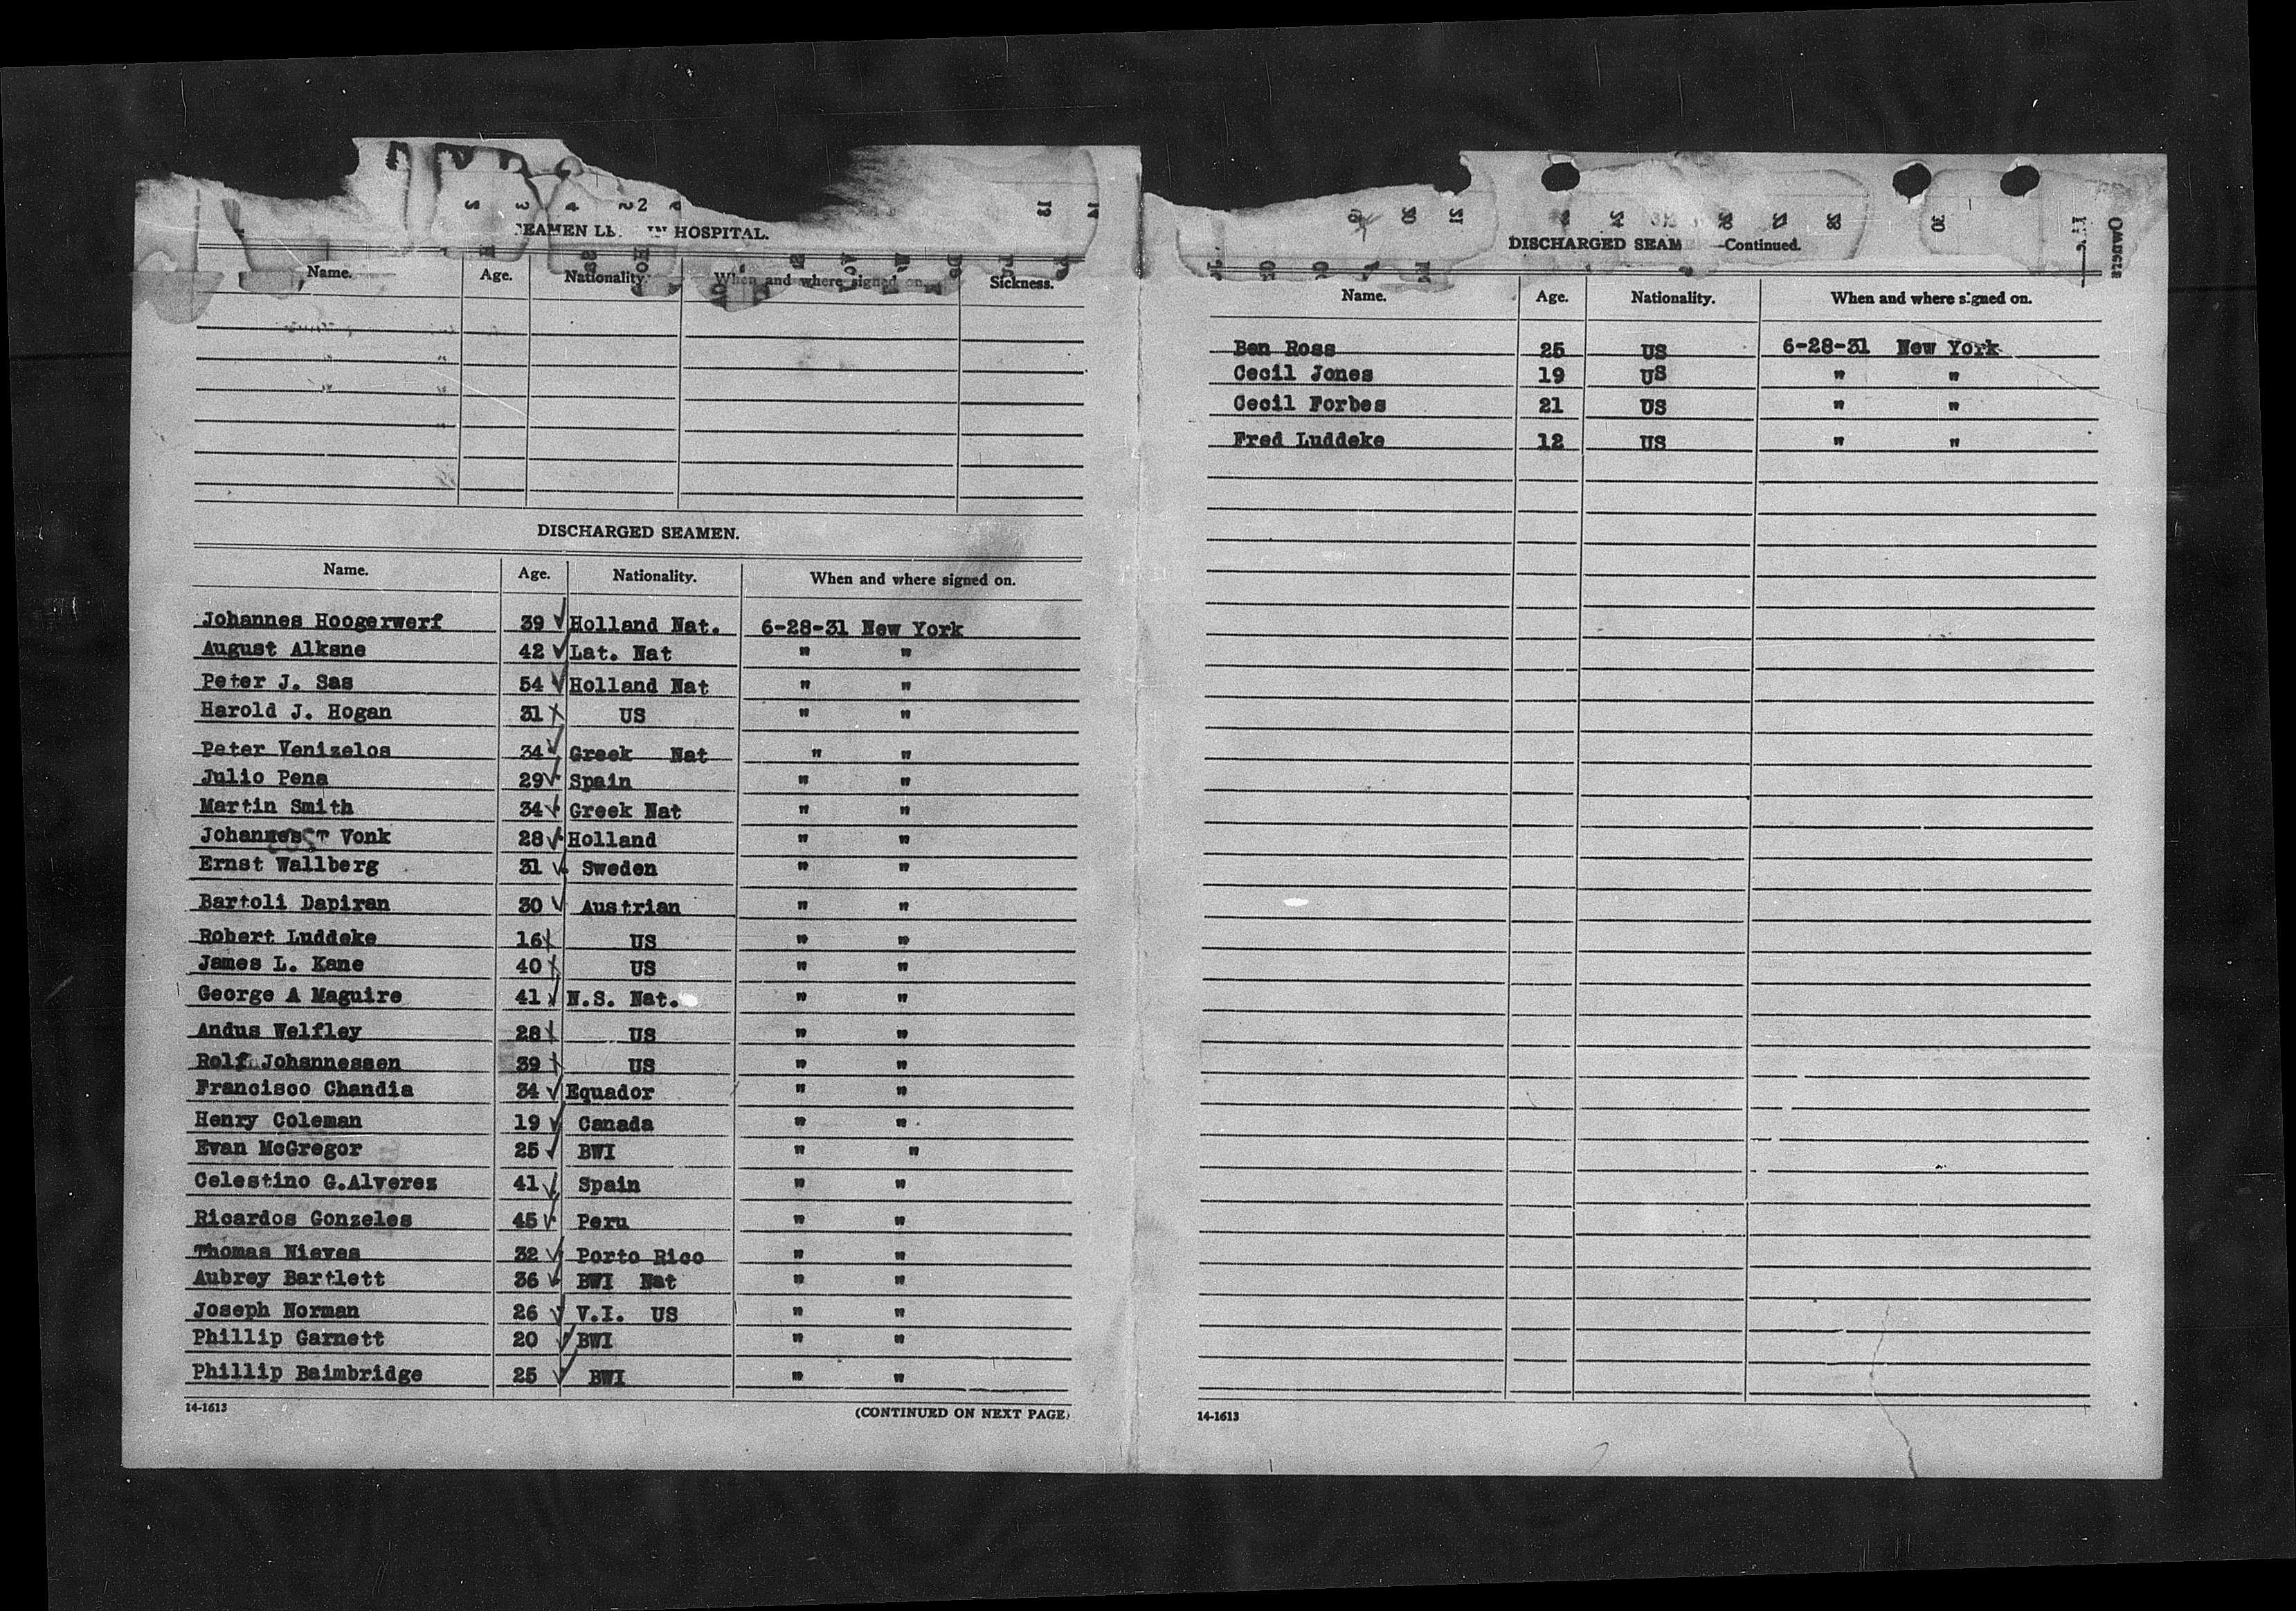 HOSPITAL.
Name. Age. Nationality. When and where signed on. Sickness.
DISCHARGED SEAMEN.
Name. Age. Nationality. When and where signed on.
Johannes Hoogerwerf 39 Holland Nat. 6-28-31 New York
August Alksne 42 Lat. Nat " "
Peter J. Sas 54 Holland Nat " "
Harold J. Hogan 31 US " "
Peter Venizelos 34 Greek Nat " "
Julio Pena 29 Spain " "
Martin Smith 34 Greek Nat " "
Johannes Vonk 28 Holland " "
Ernst Wallberg 31 Sweden " "
Bartoli Dapiran 30 Austrian " "
Robert Luddeke 16 US " "
James L. Kane 40 US " "
George A Maguire 41 N.S. Nat. " "
Andus Welfley 28 US " "
Rolf Johannessen 39 US " "
Francisco Chandia 34 Equador " "
Henry Coleman 19 Canada " "
Evan McGregor 25 BWI " "
Celestino G.Alverez 41 Spain " "
Ricardos Gonzeles 45 Peru " "
Thomas Nieves 32 Porto Rico " "
Aubrey Bartlett 36 BWI Nat " "
Joseph Norman 26 V.I. US " "
Phillip Garnett 20 BWI " "
Phillip Baimbridge 25 BWI " "
14-1613 (CONTINUED ON NEXT PAGE)
DISCHARGED SEAM —Continued.
Name. Age. Nationality. When and where signed on.
Ben Ross 25 US 6-28-31 New York
Cecil Jones 19 US " "
Cecil Forbes 21 US " "
Fred Luddeke 12 US " "
14-1613